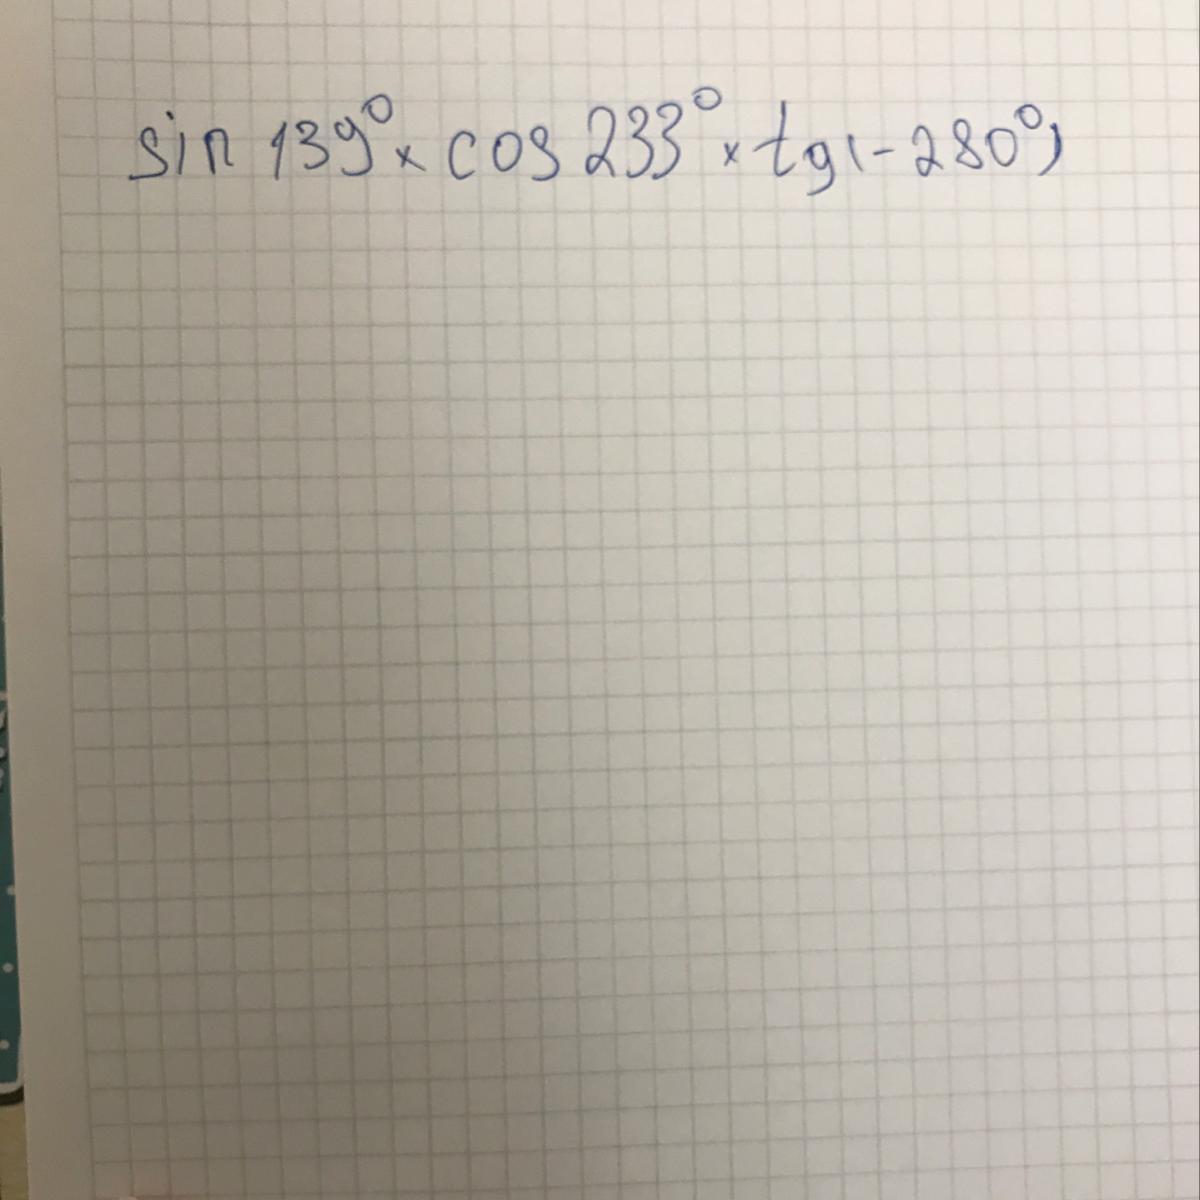 sin 139° × cos 233° × tg(-280°)